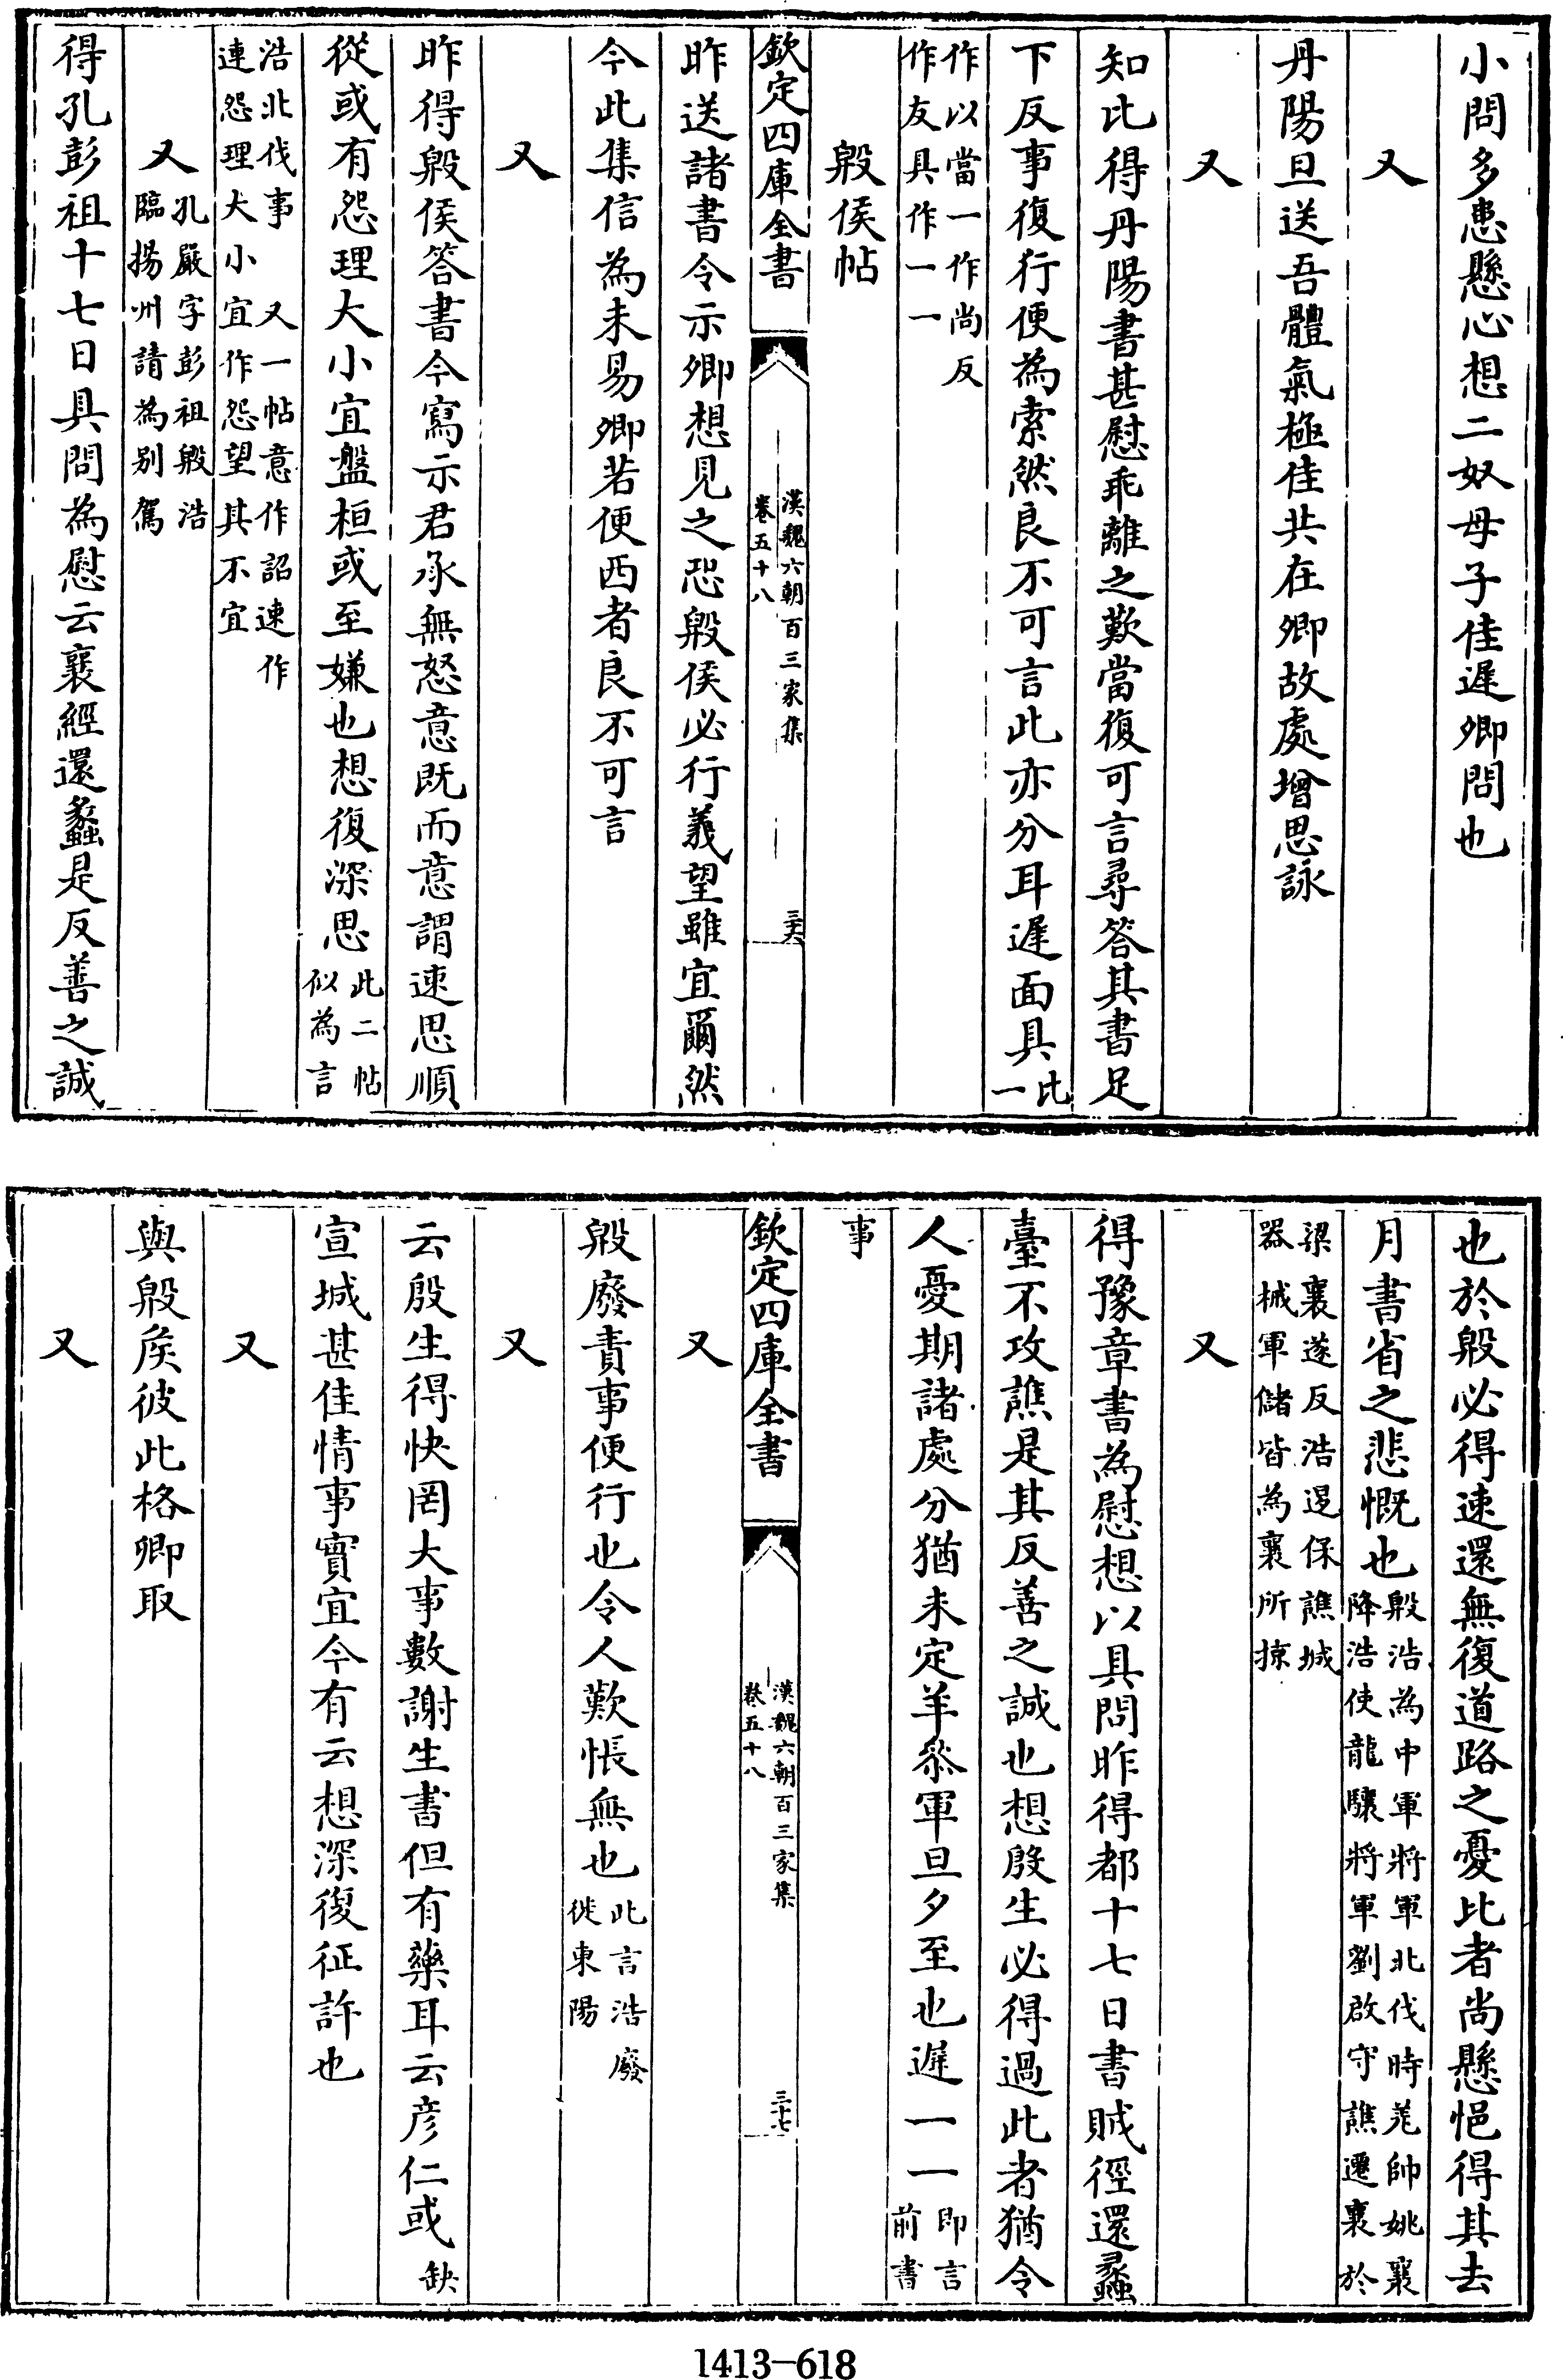 小問多患懸心想二奴母子佳遲卿問也
又
丹陽旦送吾體氣極佳共在卿故處增思詠
又
知比得丹陽書甚慰乖離之歎當復可言尋答其書足
下反事復行便為索然良不可言此亦分耳遲面具比一
作以當一作尚反
作友具作一一
殷侯帖
欽定四庫全書
漢魏六朝百三家集
卷五十八
三六
昨送諸書令示卿想見之恐殷侯必行義望雖宜爾然
今此集信為未易卿若便西者良不可言
又
昨得殷侯答書今寫示君承無怒意既而意謂速思順
從或有怨理大小宜盤桓或至嫌也想復深思此二帖似為言
浩北伐事 又一帖意作詔速作
連怨理大小宜作怨望其不宜
又孔嚴字彭祖殷浩臨揚州請為别駕
得孔彭祖十七日具問為慰云襄經還蠡是反善之誠
也於殷必得速還無復道路之憂比者尚懸悒得其去
月書省之悲慨也殷浩為中軍將軍北伐時羌帥姚襄降浩使龍驤將軍劉啟守譙遷襄於
梁襄遂反浩退保譙城
器械軍儲皆為襄所掠
又
得豫章書為慰想以具問昨得都十七日書賊徑還蠡
臺不攻譙是其反善之誠也想殷生必得過此者猶令
人憂期諸處分猶未定羊參軍旦夕至也遲一一即言前書
事
欽定四庫全書
漢魏六朝百三家集
卷五十八
三七
又
殷廢責事便行也令人歎悵無也此言浩廢徙東陽
又
云殷生得快罔大事數謝生書但有藥耳云彦仁或缺
宣城甚佳情事實宜今有云想深復征許也
又
與殷矦彼此格卿取
又
1413-618